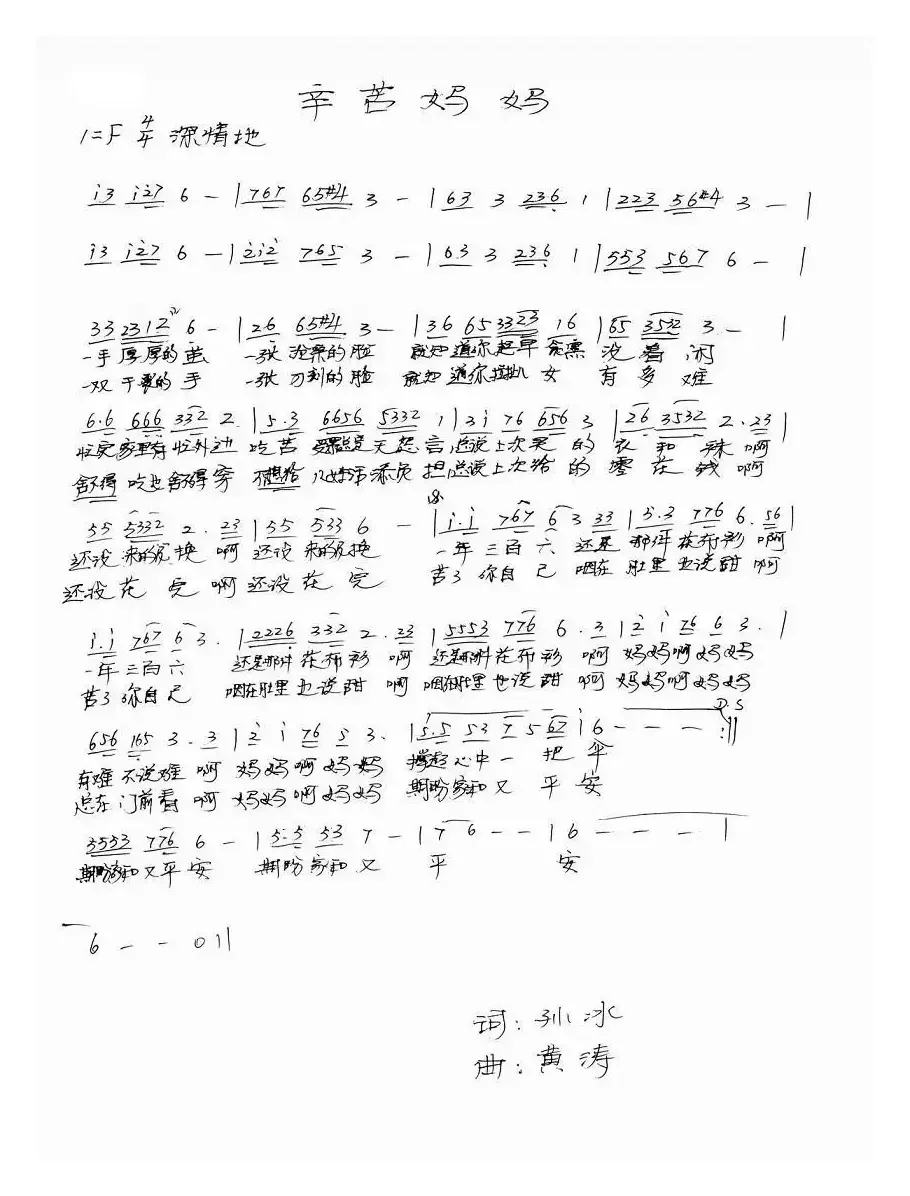 辛苦妈妈
1=F 4/4 深情地
i3 i27 6 - | 767 65#4 3 - | 63 3 236 1 | 223 56#4 3 - |
i3 i27 6 - | 2i2 765 3 - | 6.3 3 236 1 | 553 567 6 - |
33 2312 6 - | 26 65#4 3 - | 36 65 3323 16 | 65 3532 3 - |
一手厚厚的茧 一张沧桑的脸 就知道你起早贪黑 没着闲
一双干裂的手 一张刀刻的脸 就知道你拉扯儿女 有多难
6.6 666 332 2 | 5.3 6656 5332 1 | 3i 76 656 3 | 26 3532 2.23 |
忙完家里 忙外边 吃苦 无怨言 总说上次买的衣和 啊
舍不得吃也舍不得穿 不想给儿女 添负担 总说上次给的零花钱啊
55 5332 2.23 | 55 533 6 - | i.i 767 6 3 33 | 5.3 776 6.56 |
还没来的及换 啊 还没来的及换 一年三百六 还是那件花布衫 啊
还没花完 啊 还没花完 苦了你自己 咽在肚里也说甜 啊
i.i 767 6 3. | 2226 332 2.23 | 5553 776 6.3 | 2 i 76 6 3. |
一年三百六 还是那件花布衫 啊 还是那件花布衫 啊 妈妈啊妈妈
苦了你自己 咽在肚里也说甜 啊 咽在肚里也说甜 啊 妈妈啊妈妈
D.S
656 165 3.3 | 2 i 76 5 3. | 5.5 53 7 5 67 i | 6 - - - :||
有难不说难 啊 妈妈啊妈妈 撑起心中一把伞
总在门前看 啊 妈妈啊妈妈 期盼家和又平安
3553 776 6 - | 5.5 53 7 - | 7 6 - - | 6 - - - |
期盼家和又平安 期盼家和又 平 安
6 - - 0 ||
词：孙冰
曲：黄涛